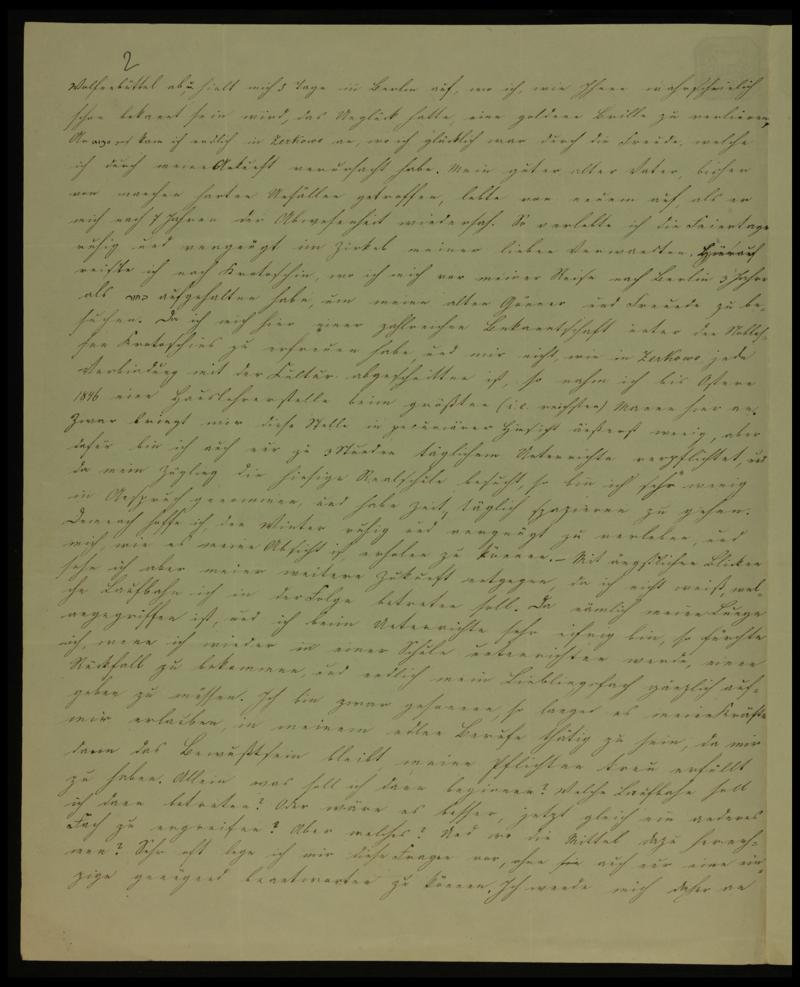 2
Wolfenbüttel ab, hielt mich 3 Tage in Berlin auf, wo ich, wie Ihnen wahrscheinlich
schon bekannt sein wird, das Unglück hatte, eine goldene Brille zu verlieren,
An kam ich endlich in Zerkowo an, wo ich glücklich war durch die Freude, welche
ich durch meine Ankunft verursacht habe. Mein guter alter Vater, bisher
von manchen harten Unfällen getroffen, lebte von neuem auf, als er
mich nach 7 Jahren der Abwesenheit wiedersah. So verlebte ich die Feiertage
ruhig und vergnügt im Zirkel meiner lieben Verwandten. Hierauf
reis'te ich nach Krotoschin, wo ich mich vor meiner Reise nach Berlin 3 Jahre
als aufgehalten habe, um meine alten Gönner und Freunde zu be-
suchen. Da ich mich hier einer zahlreichen Bekanntschaft unter den Noblef-
sen Krotoschins zu erfreuen habe und mir nicht, wie in Zerkowo jede
Verbindung mit der Kultur abgeschnitten ist, so nahm ich bis Ostern
1846 eine Hauslehrerstelle beim größten (i.e. reichsten) Manne hier an.
Zwar bringt mir diese Stelle in pecuniärer Hinsicht äußerst wenig, aber
dafür bin ich auch nur zu 3 Stunden täglichem Unterrichte verpflichtet, und
da mein Zögling die hiesige Realschule besucht, so bin ich sehr wenig
in Anspruch genommen, und habe Zeit, täglich spazieren zu gehen.
Demnach hoffe ich, den Winter ruhig und vergnügt zu verleben, und
mich, wie es meine Absicht ist, erholen zu können. – Mit ängstlichen Blicken
sehe ich aber meiner weitern Zukunft entgegen, da ich nicht weiß, wel-
che Laufbahn ich in der Folge betreten soll. Da nämlich meine Lunge
angegriffen ist, und ich beim Unterrichte sehr eifrig bin, so fürchte
ich, wenn ich wieder in einer Schule unterrichten werde, einen
Rückfall zu bekommen, und endlich mein Lieblingsfach gänzlich auf-
geben zu müssen. Ich bin zwar gesonnen, so lange es meine Kräfte
mir erlauben, in meinem edlen Berufe thätig zu sein, da mir
dann das Bewußtsein bleibt meine Pflichten treu erfüllt
zu haben. Allein was soll ich dann beginnen? Welche Laufbahn soll
ich dann betreten? Oder wäre es besser, jetzt gleich ein anderes
Fach zu ergreifen? Aber welches? Und wo die Mittel dazu herneh-
men? Sehr oft lege ich mir diese Fragen vor, ohne auch nur eine ein-
zige genügend beantworten zu können. Ich wende mich daher an